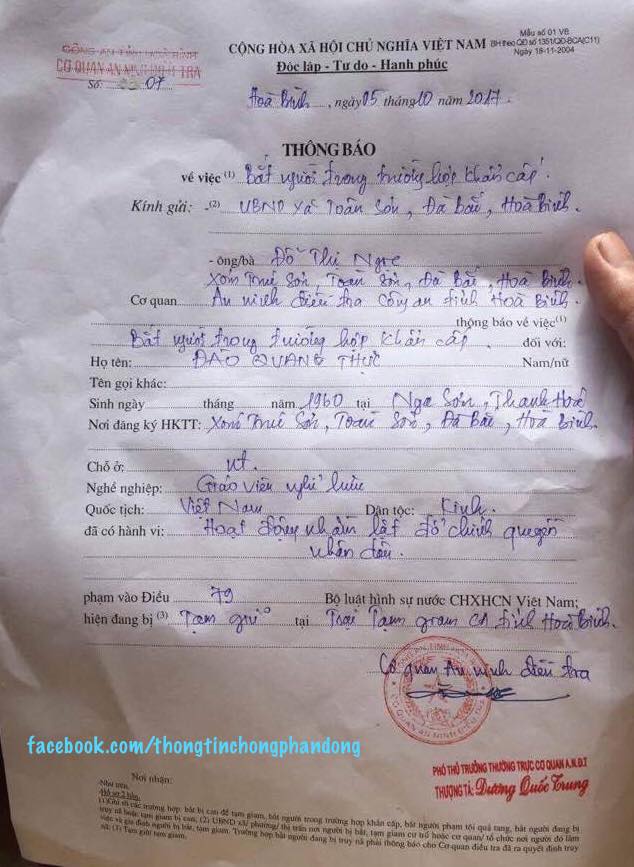 CÔNG AN TỈNH HOÀ BÌNH
CƠ QUAN AN NINH ĐIỀU TRA
Số: 07
CỘNG HÒA XÃ HỘI CHỦ NGHĨA VIỆT NAM
Độc lập - Tự do - Hạnh phúc
Mẫu số 01 VB
BH theo QĐ số 1351/QĐ-BCA(C11)
Ngày 18-11-2004
Hoà Bình, ngày 05 tháng 10 năm 2017.
THÔNG BÁO
về việc (1) Bắt người trong trường hợp khẩn cấp.
Kính gửi: -(2) UBND Xã Toàn Sơn, Đà Bắc, Hoà Bình.
- ông/bà Đỗ Thị Nga
Xóm Trúc Sơn, Toàn Sơn, Đà Bắc, Hoà Bình.
Cơ quan An ninh điều tra Công an tỉnh Hoà Bình.
thông báo về việc(1)
Bắt người trong trường hợp khẩn cấp. đối với:
Họ tên: ĐÀO QUANG THỰC Nam/nữ
Tên gọi khác:
Sinh ngày tháng năm 1960 tại Nga Sơn, Thanh Hoá
Nơi đăng ký HKTT: Xóm Trúc Sơn, Toàn Sơn, Đà Bắc, Hoà Bình.
Chỗ ở: nt.
Nghề nghiệp: Giáo viên nghỉ hưu
Quốc tịch: Việt Nam Dân tộc: Kinh.
đã có hành vi: Hoạt động nhằm lật đổ chính quyền
nhân dân.
phạm vào Điều 79 Bộ luật hình sự nước CHXHCN Việt Nam;
hiện đang bị (3) Tạm giữ tại Trại Tạm giam CA tỉnh Hoà Bình.
Cơ quan An ninh điều tra
CƠ QUAN AN NINH ĐIỀU TRA
facebook.com/thongtinchongphandong
PHÓ THỦ TRƯỞNG THƯỜNG TRỰC CƠ QUAN A.N.Đ.T
THƯỢNG TÁ: Dương Quốc Trung
Nơi nhận:
Như trên.
Hồ sơ 2 bản.
(1)Ghi rõ các trường hợp: bắt bị can để tạm giam, bắt người trong trường hợp khẩn cấp, bắt người phạm tội quả tang, bắt người đang bị
truy nã hoặc tạm giam bị can. (2) UBND xã/ phường/ thị trấn nơi người bị bắt, tạm giam cư trú hoặc cơ quan/ tổ chức nơi người đó làm
việc và gia đình người bị bắt, tạm giam. Trường hợp bắt người đang bị truy nã phải thông báo cho Cơ quan điều tra đã ra quyết định truy
nã; (3) Tạm giữ/ tạm giam.